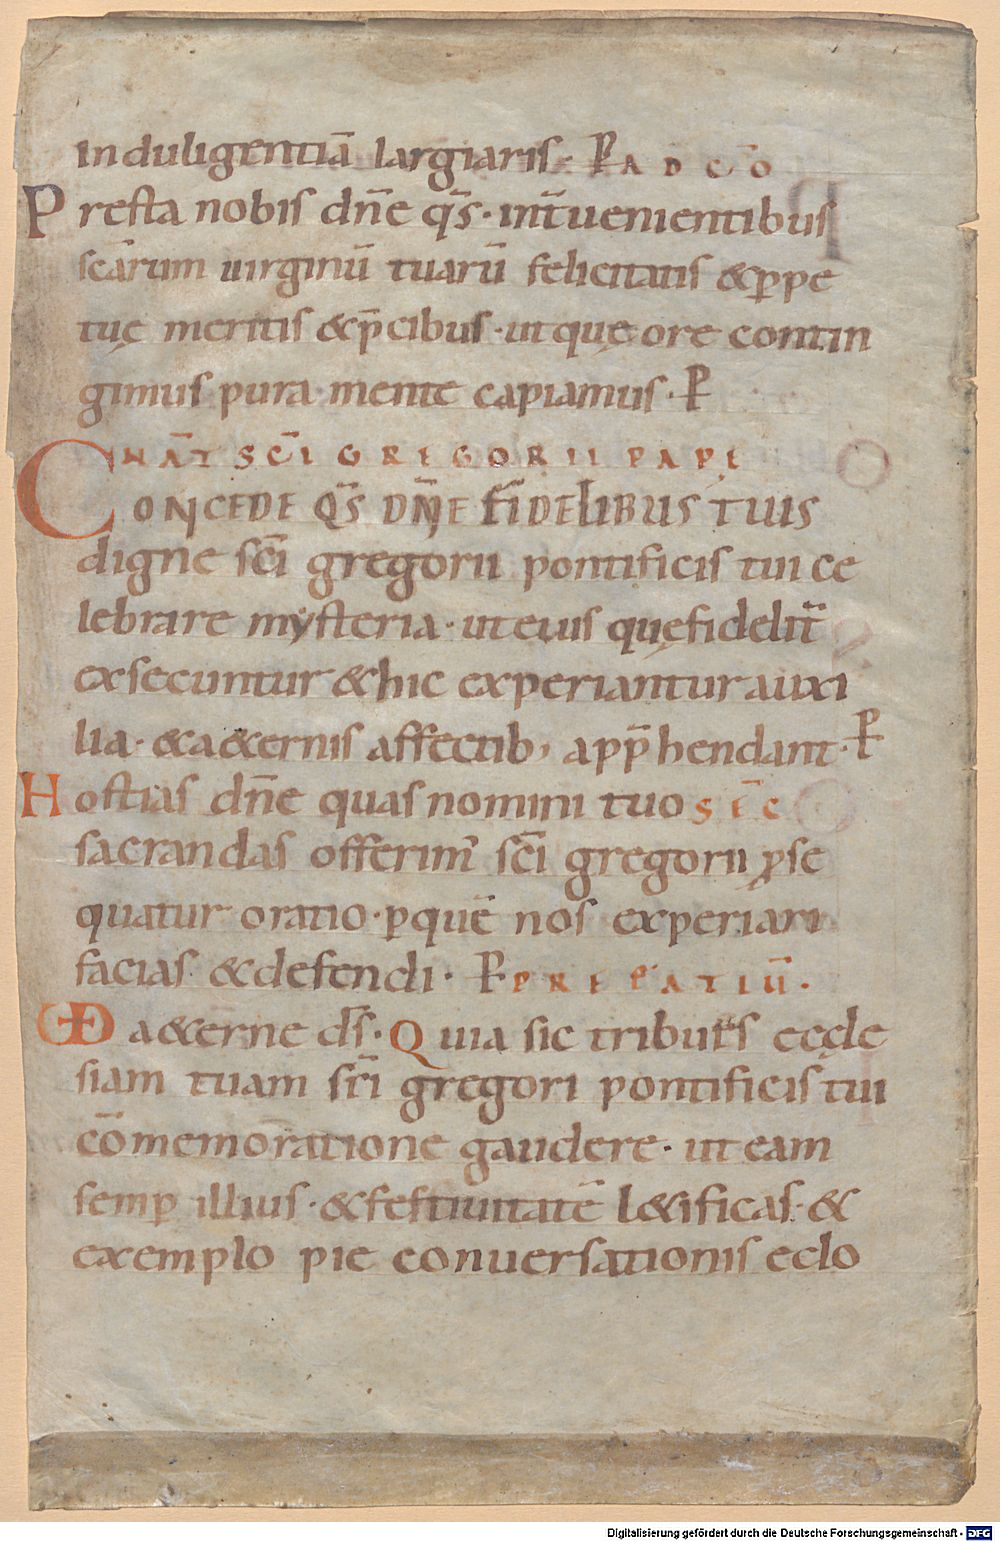 induligentiā largiaris· P̄ AD CŌ
Presta nobis dn̄e qs̄· int̄uenientibus
sc̄arum virginū tuarū felicitatis &ꝑpe
tuę meritis &p̄cibus· ut quę ore contin
gimus pura mente capiamus· P̄
IN NĀT SC̄I GREGORII PAPĘ
CONCEDE QS̄ DN̄E FIDELIBUS TUIS
digne sc̄i gregorii pontificis tui ce
lebrare mysteria· ut eius quę fidelit̄
exsecuntur & hic experiantur auxi
lia· & a&ernis affectib; app̄hendant· P̄
Hostias dn̄e quas nomini tuo SEC̄
sacrandas offerim' sc̄i gregorii ꝓse
quatur oratio· ꝑ quē nos experiari
facias & defendi· P̄ PREFATIŪ·
VD a&erne ds̄· Quia sic tribuis eccle
siam tuam sc̄i gregori pontificis tui
cōmemoratione gaudere· ut eam
semꝑ illius· & festiuitatē l&ificas· &
exemplo pie conuersationis eclo
Digitalisierung gefördert durch die Deutsche Forschungsgemeinschaft - DFG